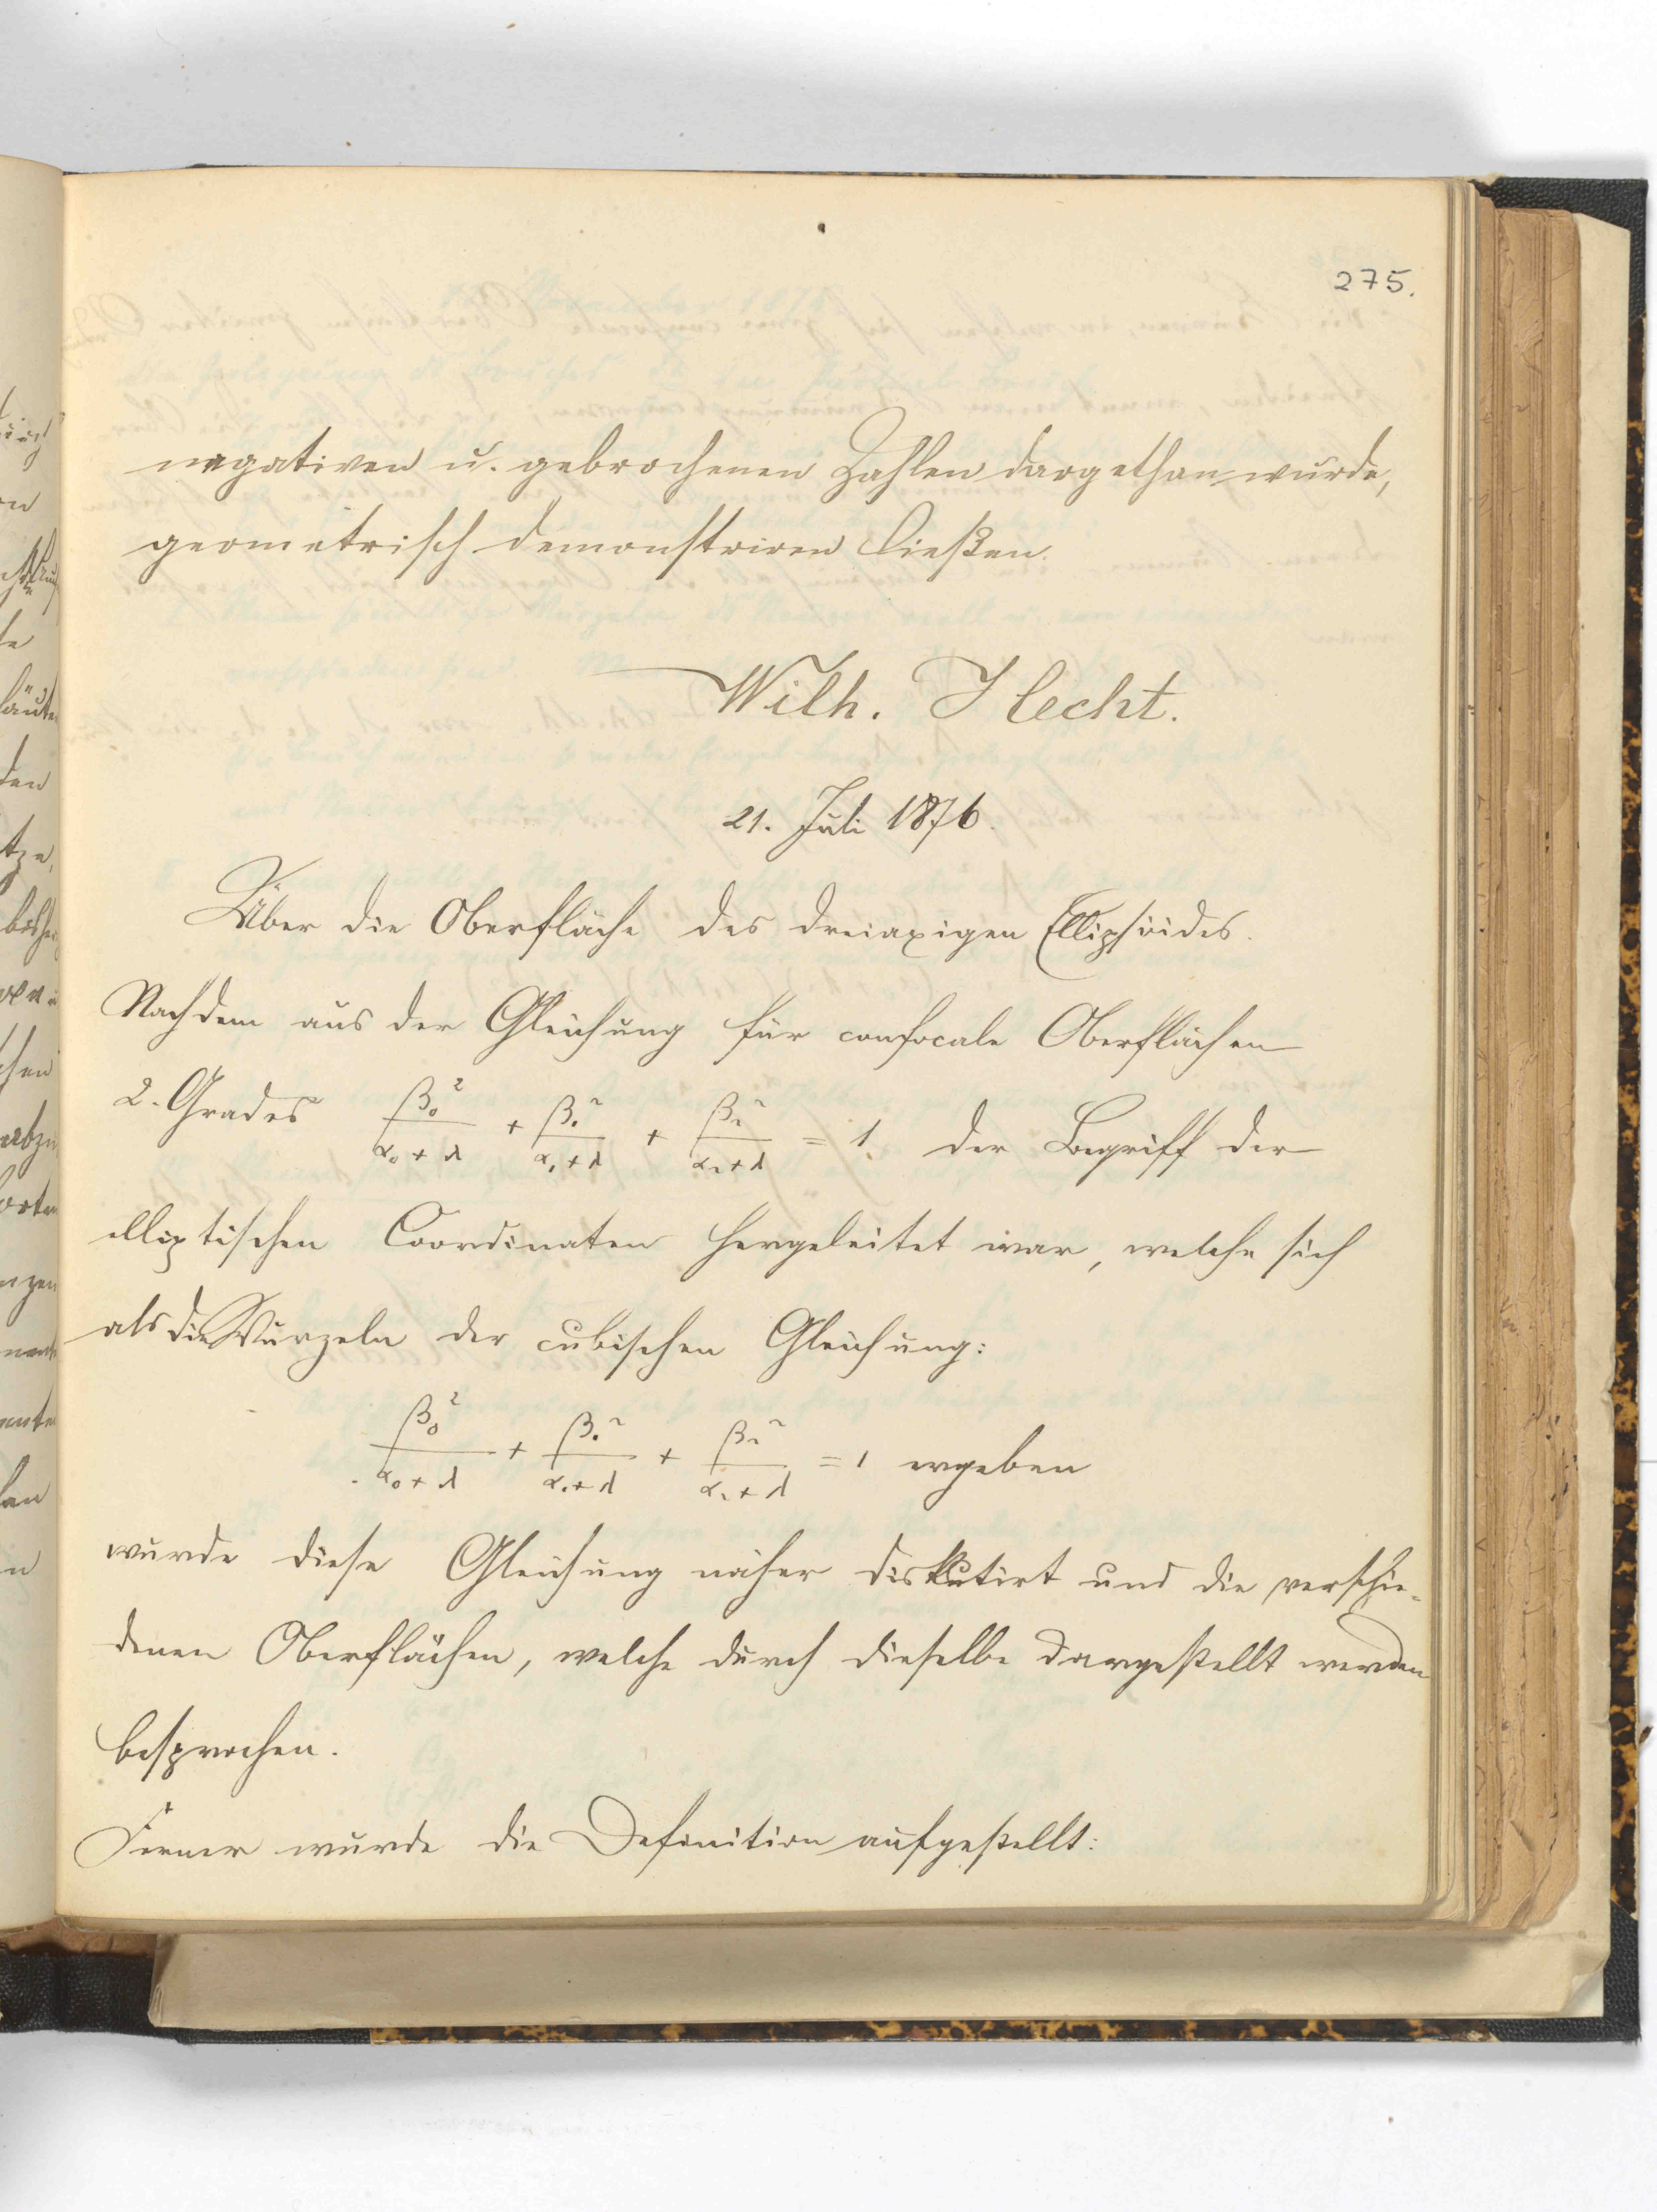 275.
negativen u. gebrochenen Zahlen dargethan wurde,
geometrisch demonstriren ließen.
Wilh. Hecht.
21. Juli 1876.
Über die Oberfläche des dreiaxigen Ellipsoides.
Nachdem aus der Gleichung für confocale Oberflächen
2. Grades β₀²/(α₀+λ) + β₁²/(α₁+λ) + β₂²/(α₂+λ) = 1 der Begriff der
elliptischen Coordinaten hergeleitet war, welche sich
als die Wurzeln der cubischen Gleichung:
β₀²/(α₀+λ) + β₁²/(α₁+λ) + β₂²/(α₂+λ) = 1 ergeben
wurde diese Gleichung näher diskutirt und die verschie-
denen Oberflächen, welche durch dieselbe dargestellt werden
besprochen.
Ferner wurde die Definition aufgestellt: